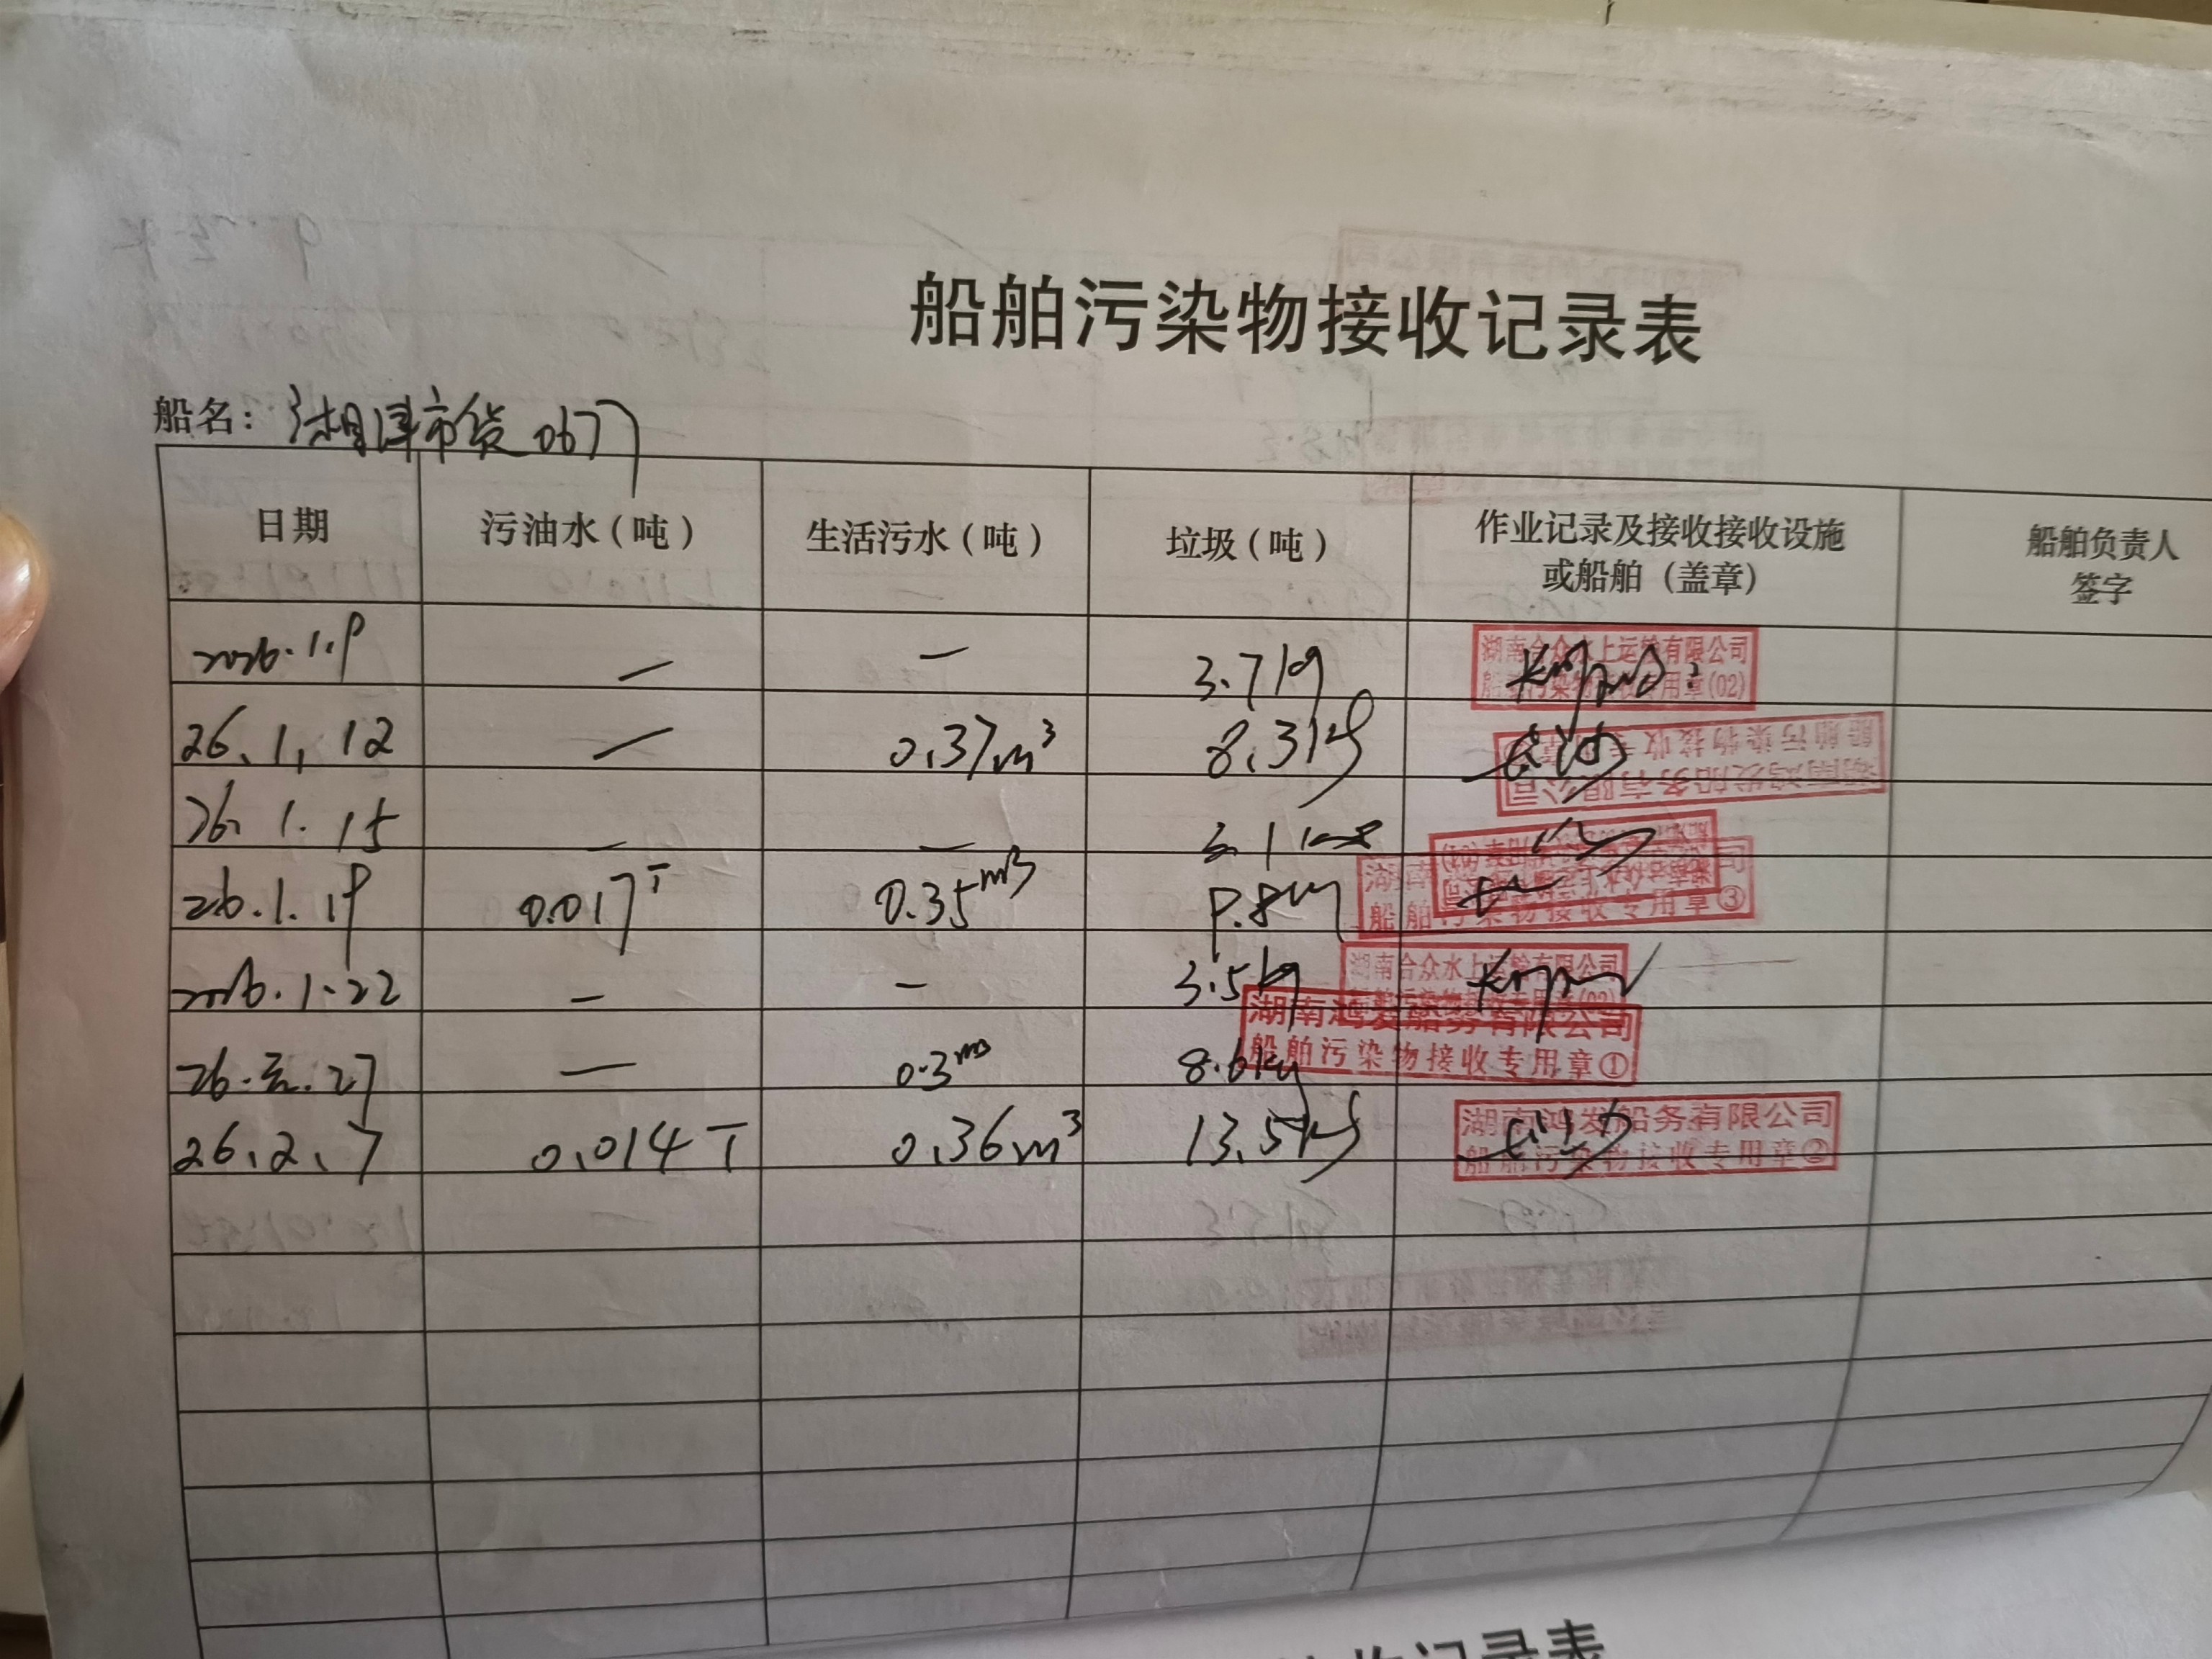 船舶污染物接收记录表
船名：湘津市货0677
日期 污油水（吨） 生活污水（吨） 垃圾（吨） 作业记录及接收接收设施或船舶（盖章） 船舶负责人签字
2026.1.9 — — 3.7kg 湖南合众水上运输有限公司
船舶污染物接收专用章(02)
26.1.12 — 0.37m³ 8.3kg 湖南鸿发船务有限公司
船舶污染物接收专用章
26.1.15 — — 3.1kg
26.1.19 0.017T 0.35m³ 9.8kg 船舶污染物接收专用章③
2026.1.22 — — 3.5kg 湖南合众水上运输有限公司
26.元.27 — 0.3m³ 8.6kg 湖南鸿发船务有限公司
船舶污染物接收专用章①
26.2.7 0.014T 0.36m³ 13.5kg 湖南鸿发船务有限公司
船舶污染物接收专用章②
收记录表